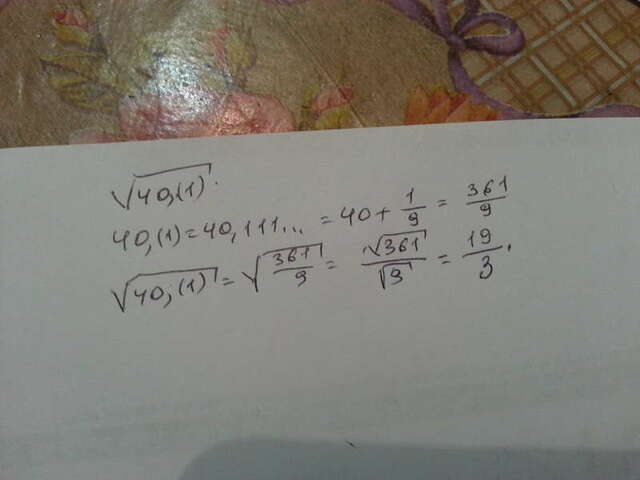 √40,(1).
40,(1)=40,111... = 40 + 1/9 = 361/9
√40,(1) = √(361/9) = √361/√9 = 19/3.